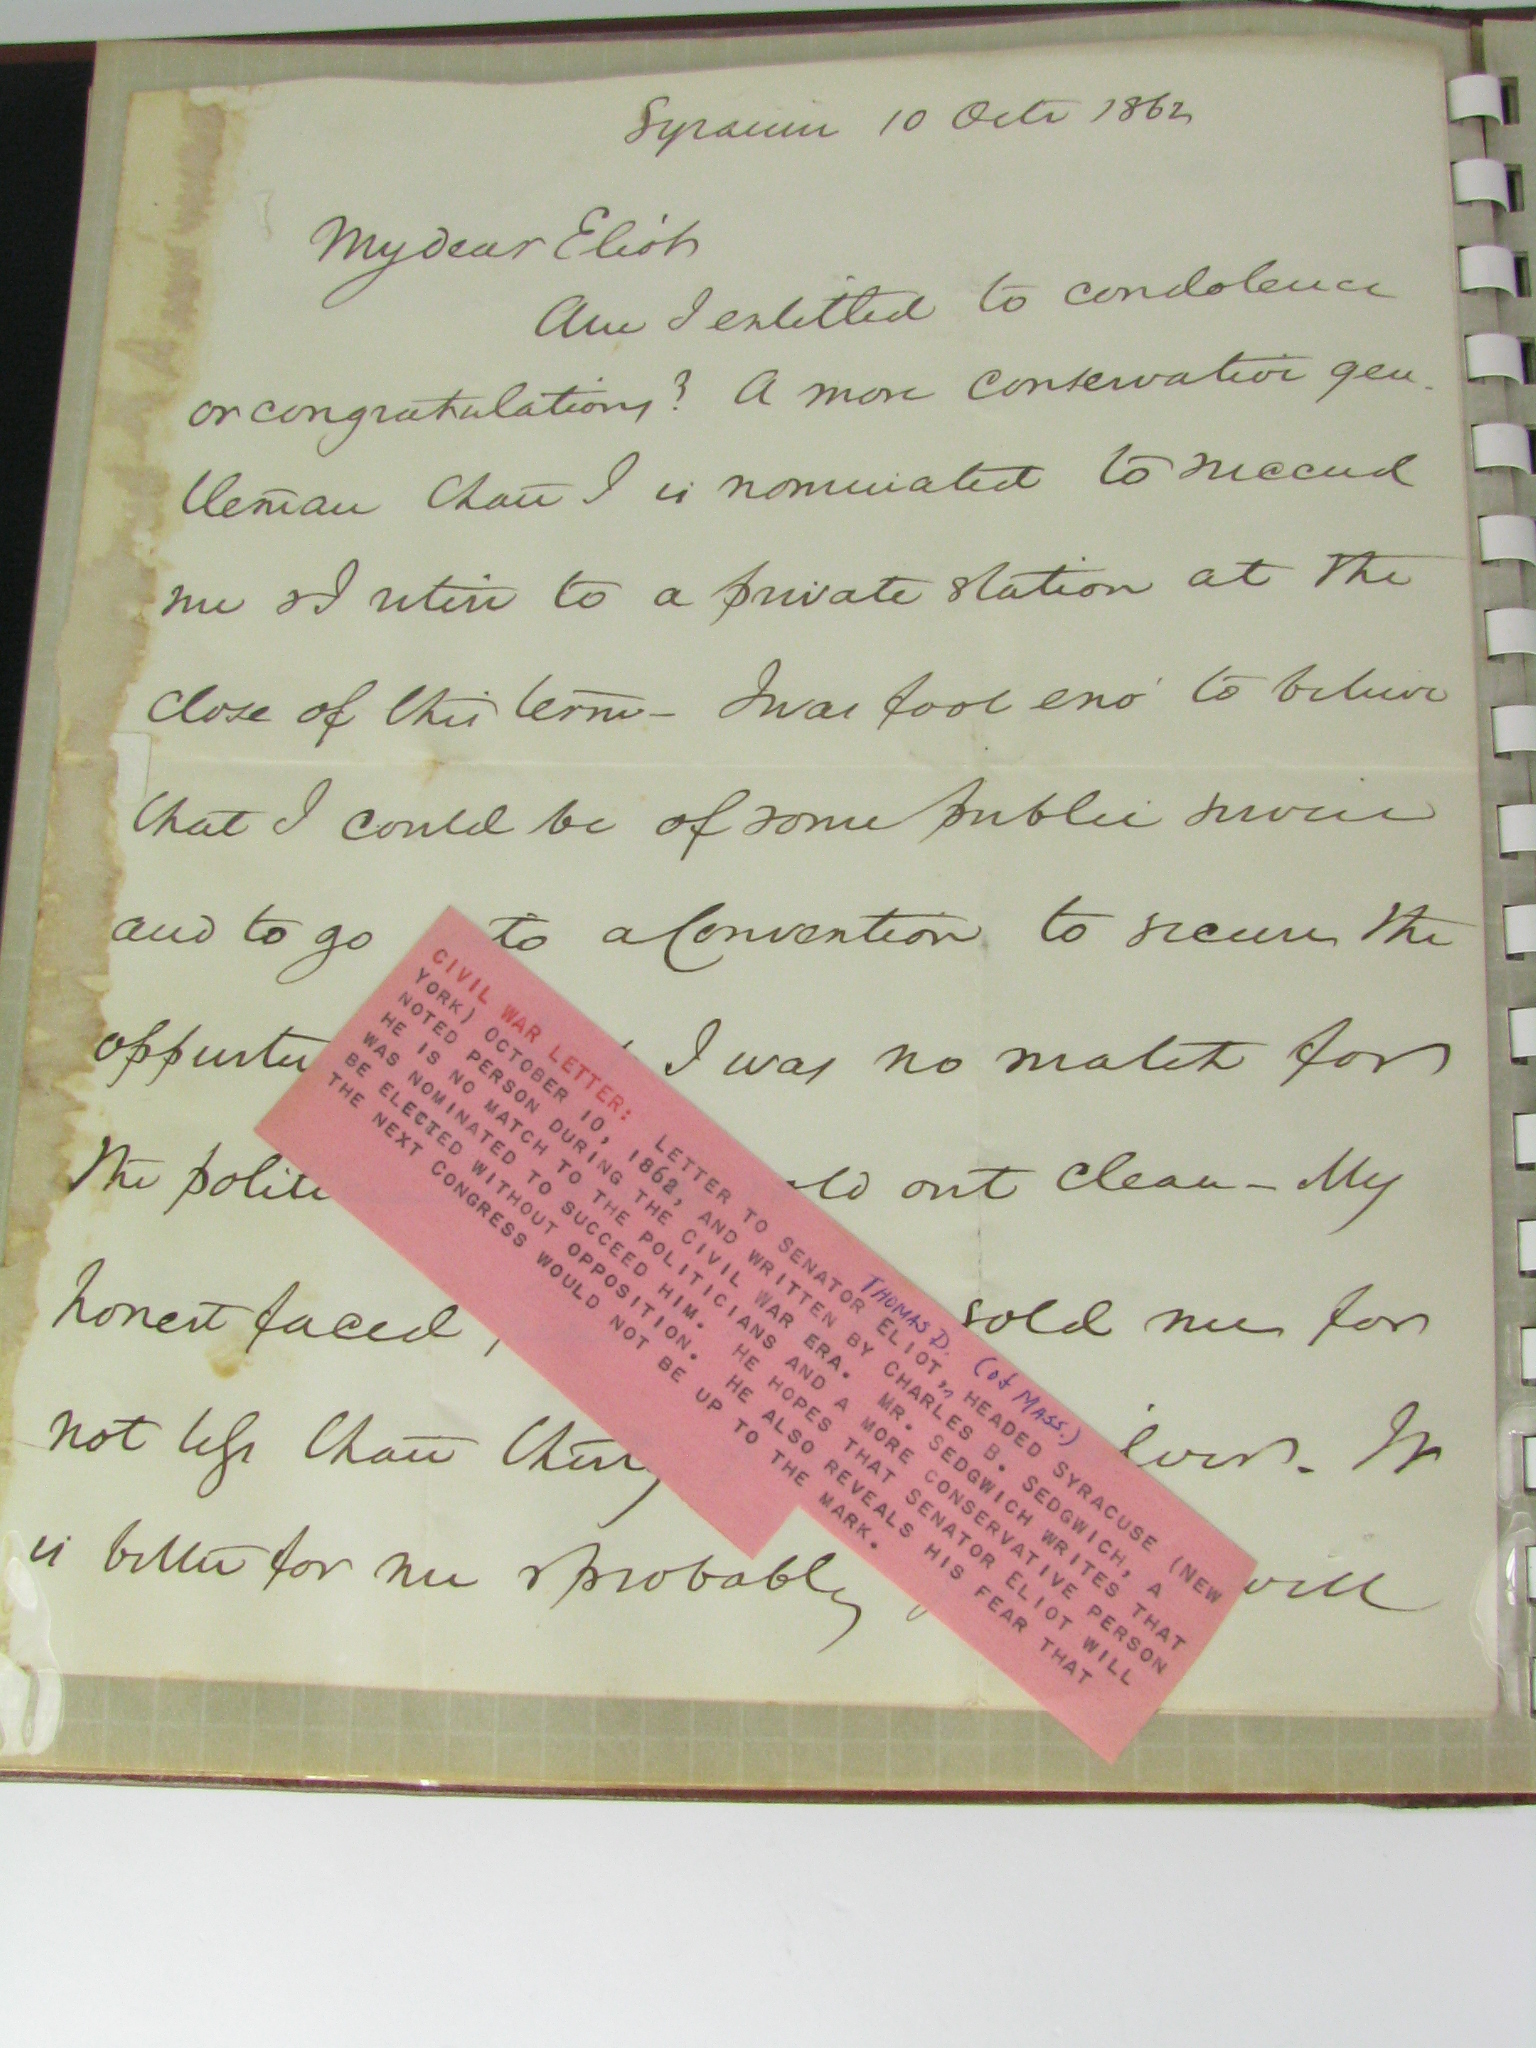 Syracuse 10 Octr 1862
My dear Eliot
Am I entitled to condolence
or congratulations? A more conservative gen-
tleman than I is nominated to succeed
me & I retire to a private station at the
close of this term - I was fool eno' to believe
that I could be of some public service
and to go to a Convention to secure the
I was no match for
The out clean - My
honest faced sold me for
not less than It
is better for me & probably will
CIVIL WAR LETTER: LETTER TO SENATOR THOMAS D. ELIOT, (of MASS.) HEADED SYRACUSE (NEW
YORK) OCTOBER 10, 1862, AND WRITTEN BY CHARLES B. SEDGWICH, A
NOTED PERSON DURING THE CIVIL WAR ERA. MR. SEDGWICH WRITES THAT
HE IS NO MATCH TO THE POLITICIANS AND A MORE CONSERVATIVE PERSON
WAS NOMINATED TO SUCCEED HIM. HE HOPES THAT SENATOR ELIOT WILL
BE ELECTED WITHOUT OPPOSITION. HE ALSO REVEALS HIS FEAR THAT
THE NEXT CONGRESS WOULD NOT BE UP TO THE MARK.